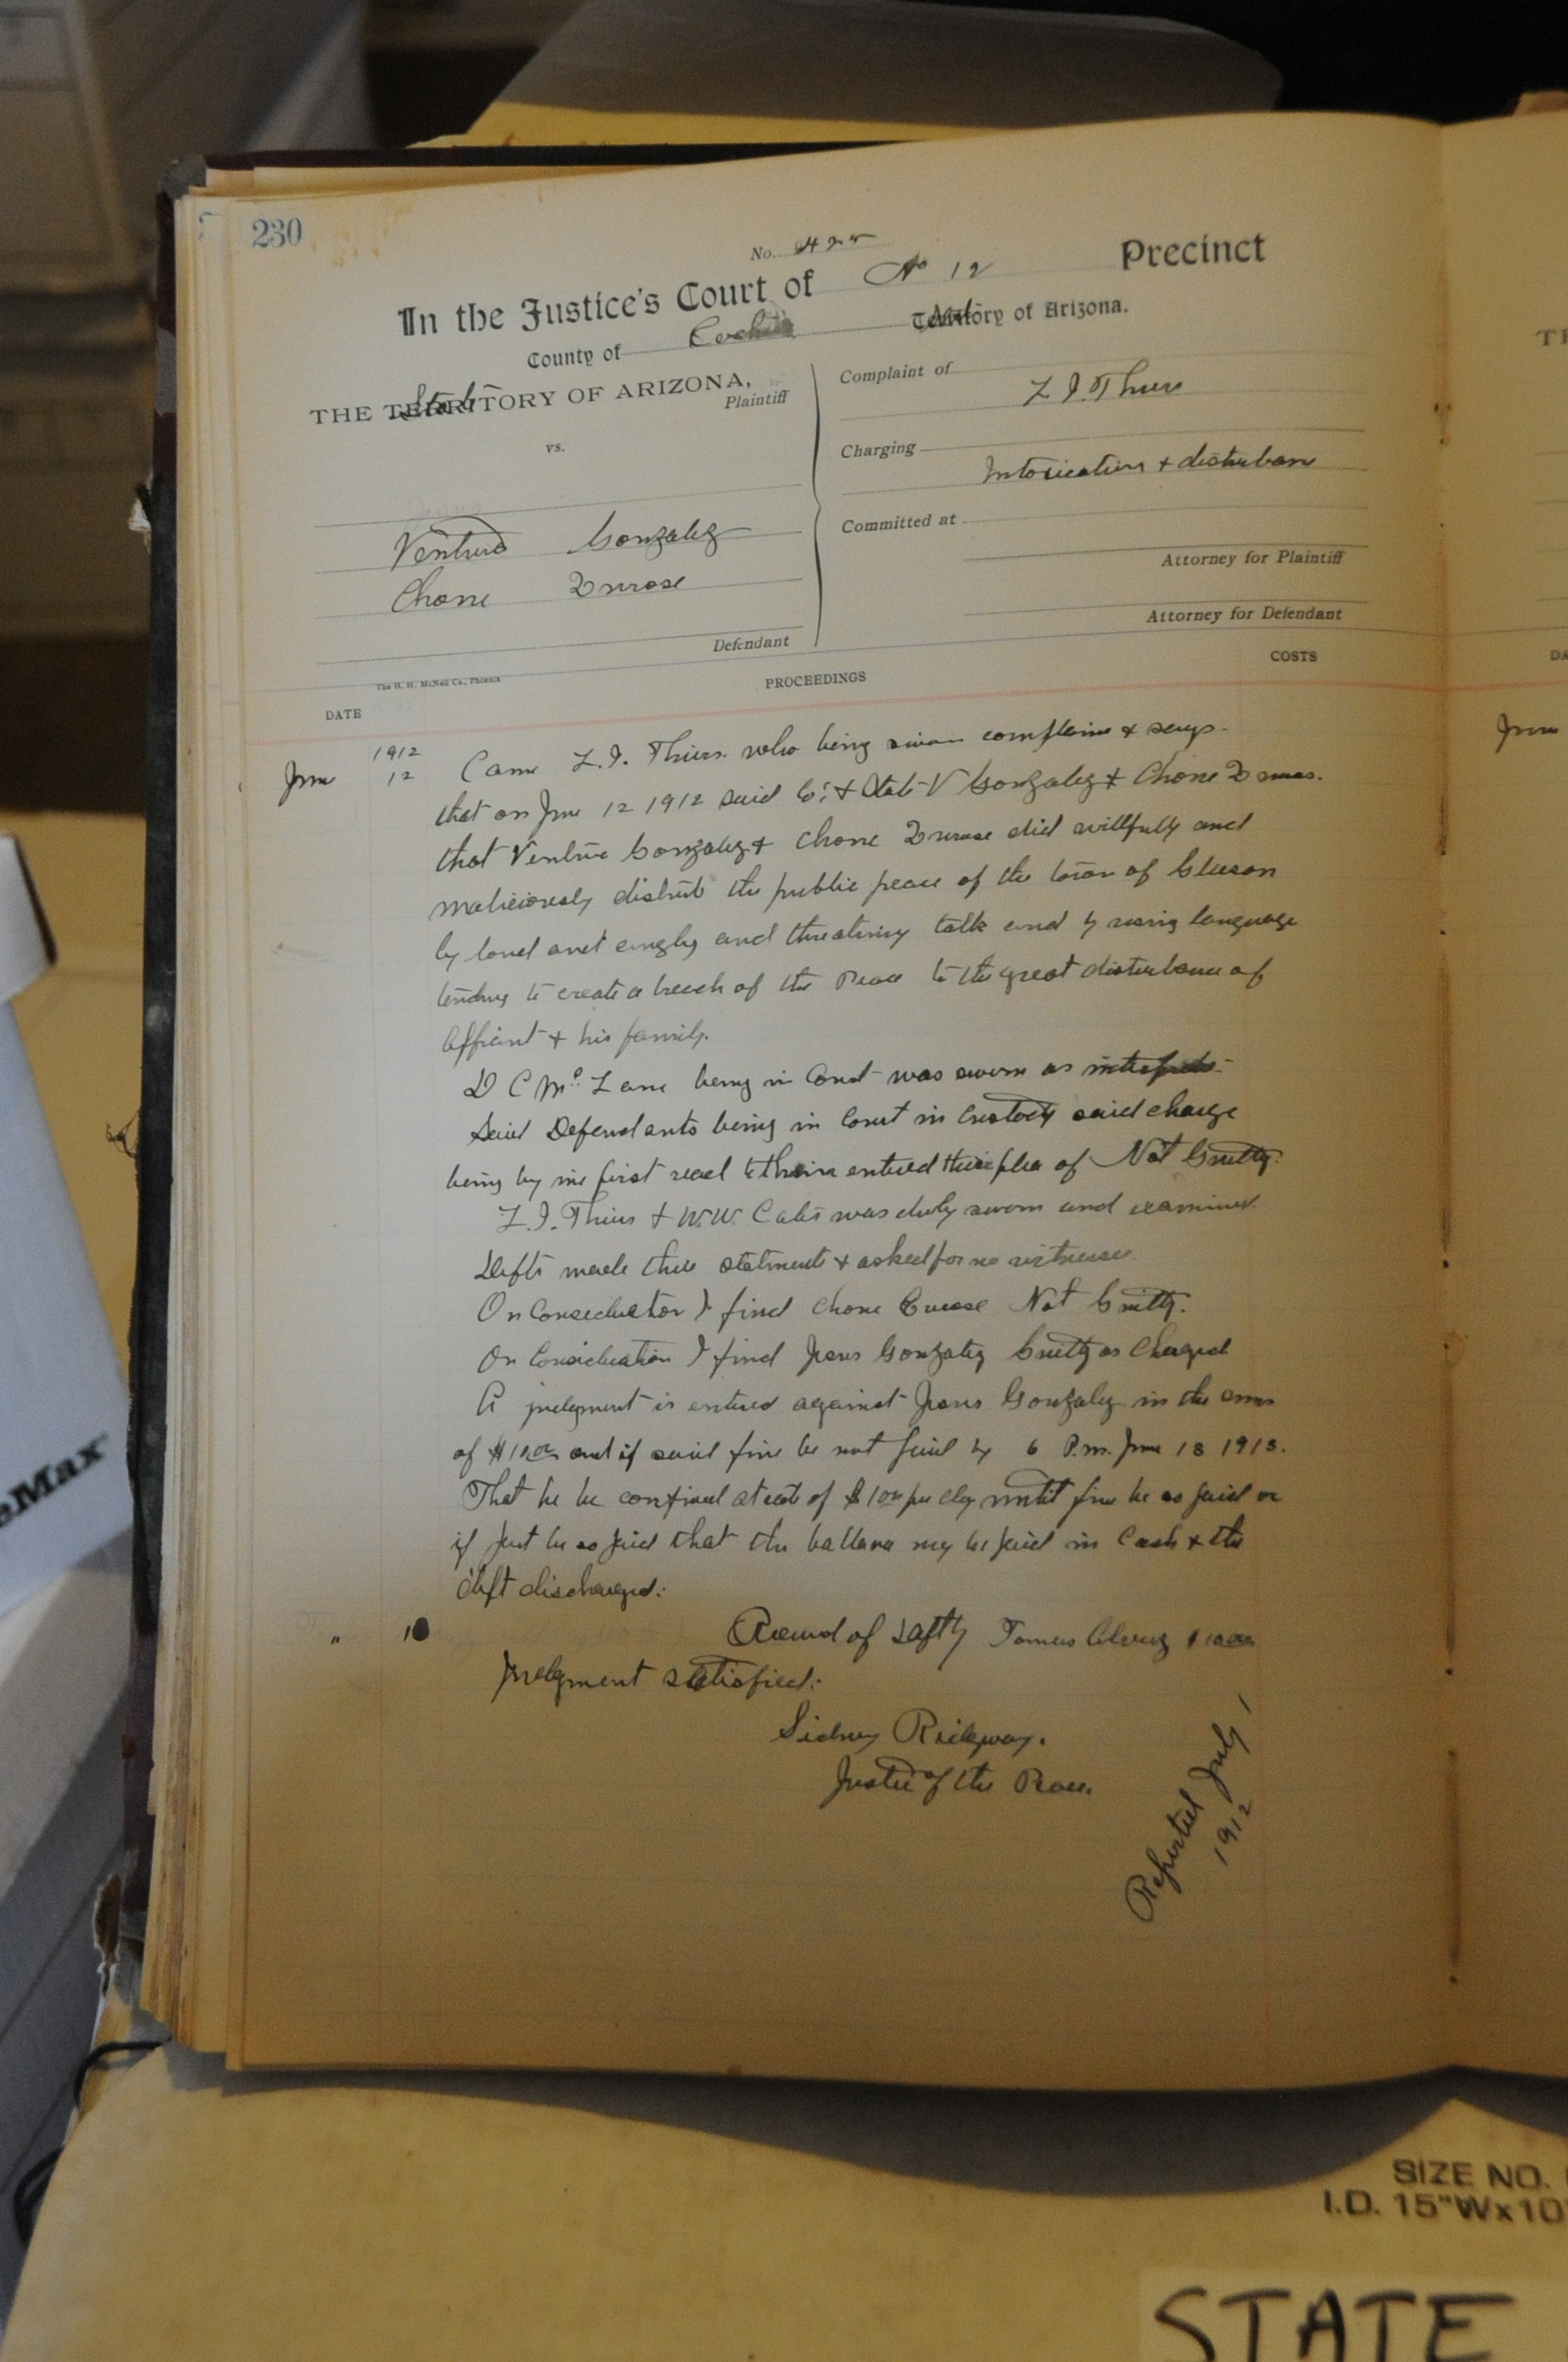 230
No. 422
In the Justice's Court of No 12 Precinct
County of Cochise Territory of Arizona.
State
THE TERRITORY OF ARIZONA,
Plaintiff
vs.
Gonzalez
Chone
Defendant
Complaint of
Charging
Intoxication + disturbanc
Committed at
Attorney for Plaintiff
Attorney for Defendant
The H. H. McNeil Co., Phoenix
DATE
PROCEEDINGS
COSTS
1912
June 12 Came who being sworn complains & says
that on June 12 1912 said Co. & State V Gonzalez & Chone
that Gonzalez & Chone did willfully and
maliciously disturb the public peace of the town of Gleeson
by loud and angry and threatning talk and by using language
tending to create a breech of the Peace to the great disturbance of
Affiant & his family.
D C Mc Lane being in Court was sworn as
Said Defendants being in Court in Custody said charge
being by me first read to them entered their plea of Not Guilty.
& W.W. was duly sworn and examined
Defts made their statments & asked for no witnesses
On Consideration I find Chone Not Guilty.
On Consideration I find Jesus Gonzalez Guilty as Charged
A judgment is entered against Jesus Gonzalez in the sum
of $10.00 and if said fine be not paid by 6 P.m. June 13 1913.
That he be confined at rate of $1.00 per day until fine be so paid or
if part be so paid that the ballance may be paid in Cash & the
deft discharged.
" Received of Tomas
Judgment satisfied.
Sidney Ridgway.
Justice of the Peace.
Reported July 1
1912
June
DA
eMax
SIZE NO.
I.D. 15"Wx10
STATE